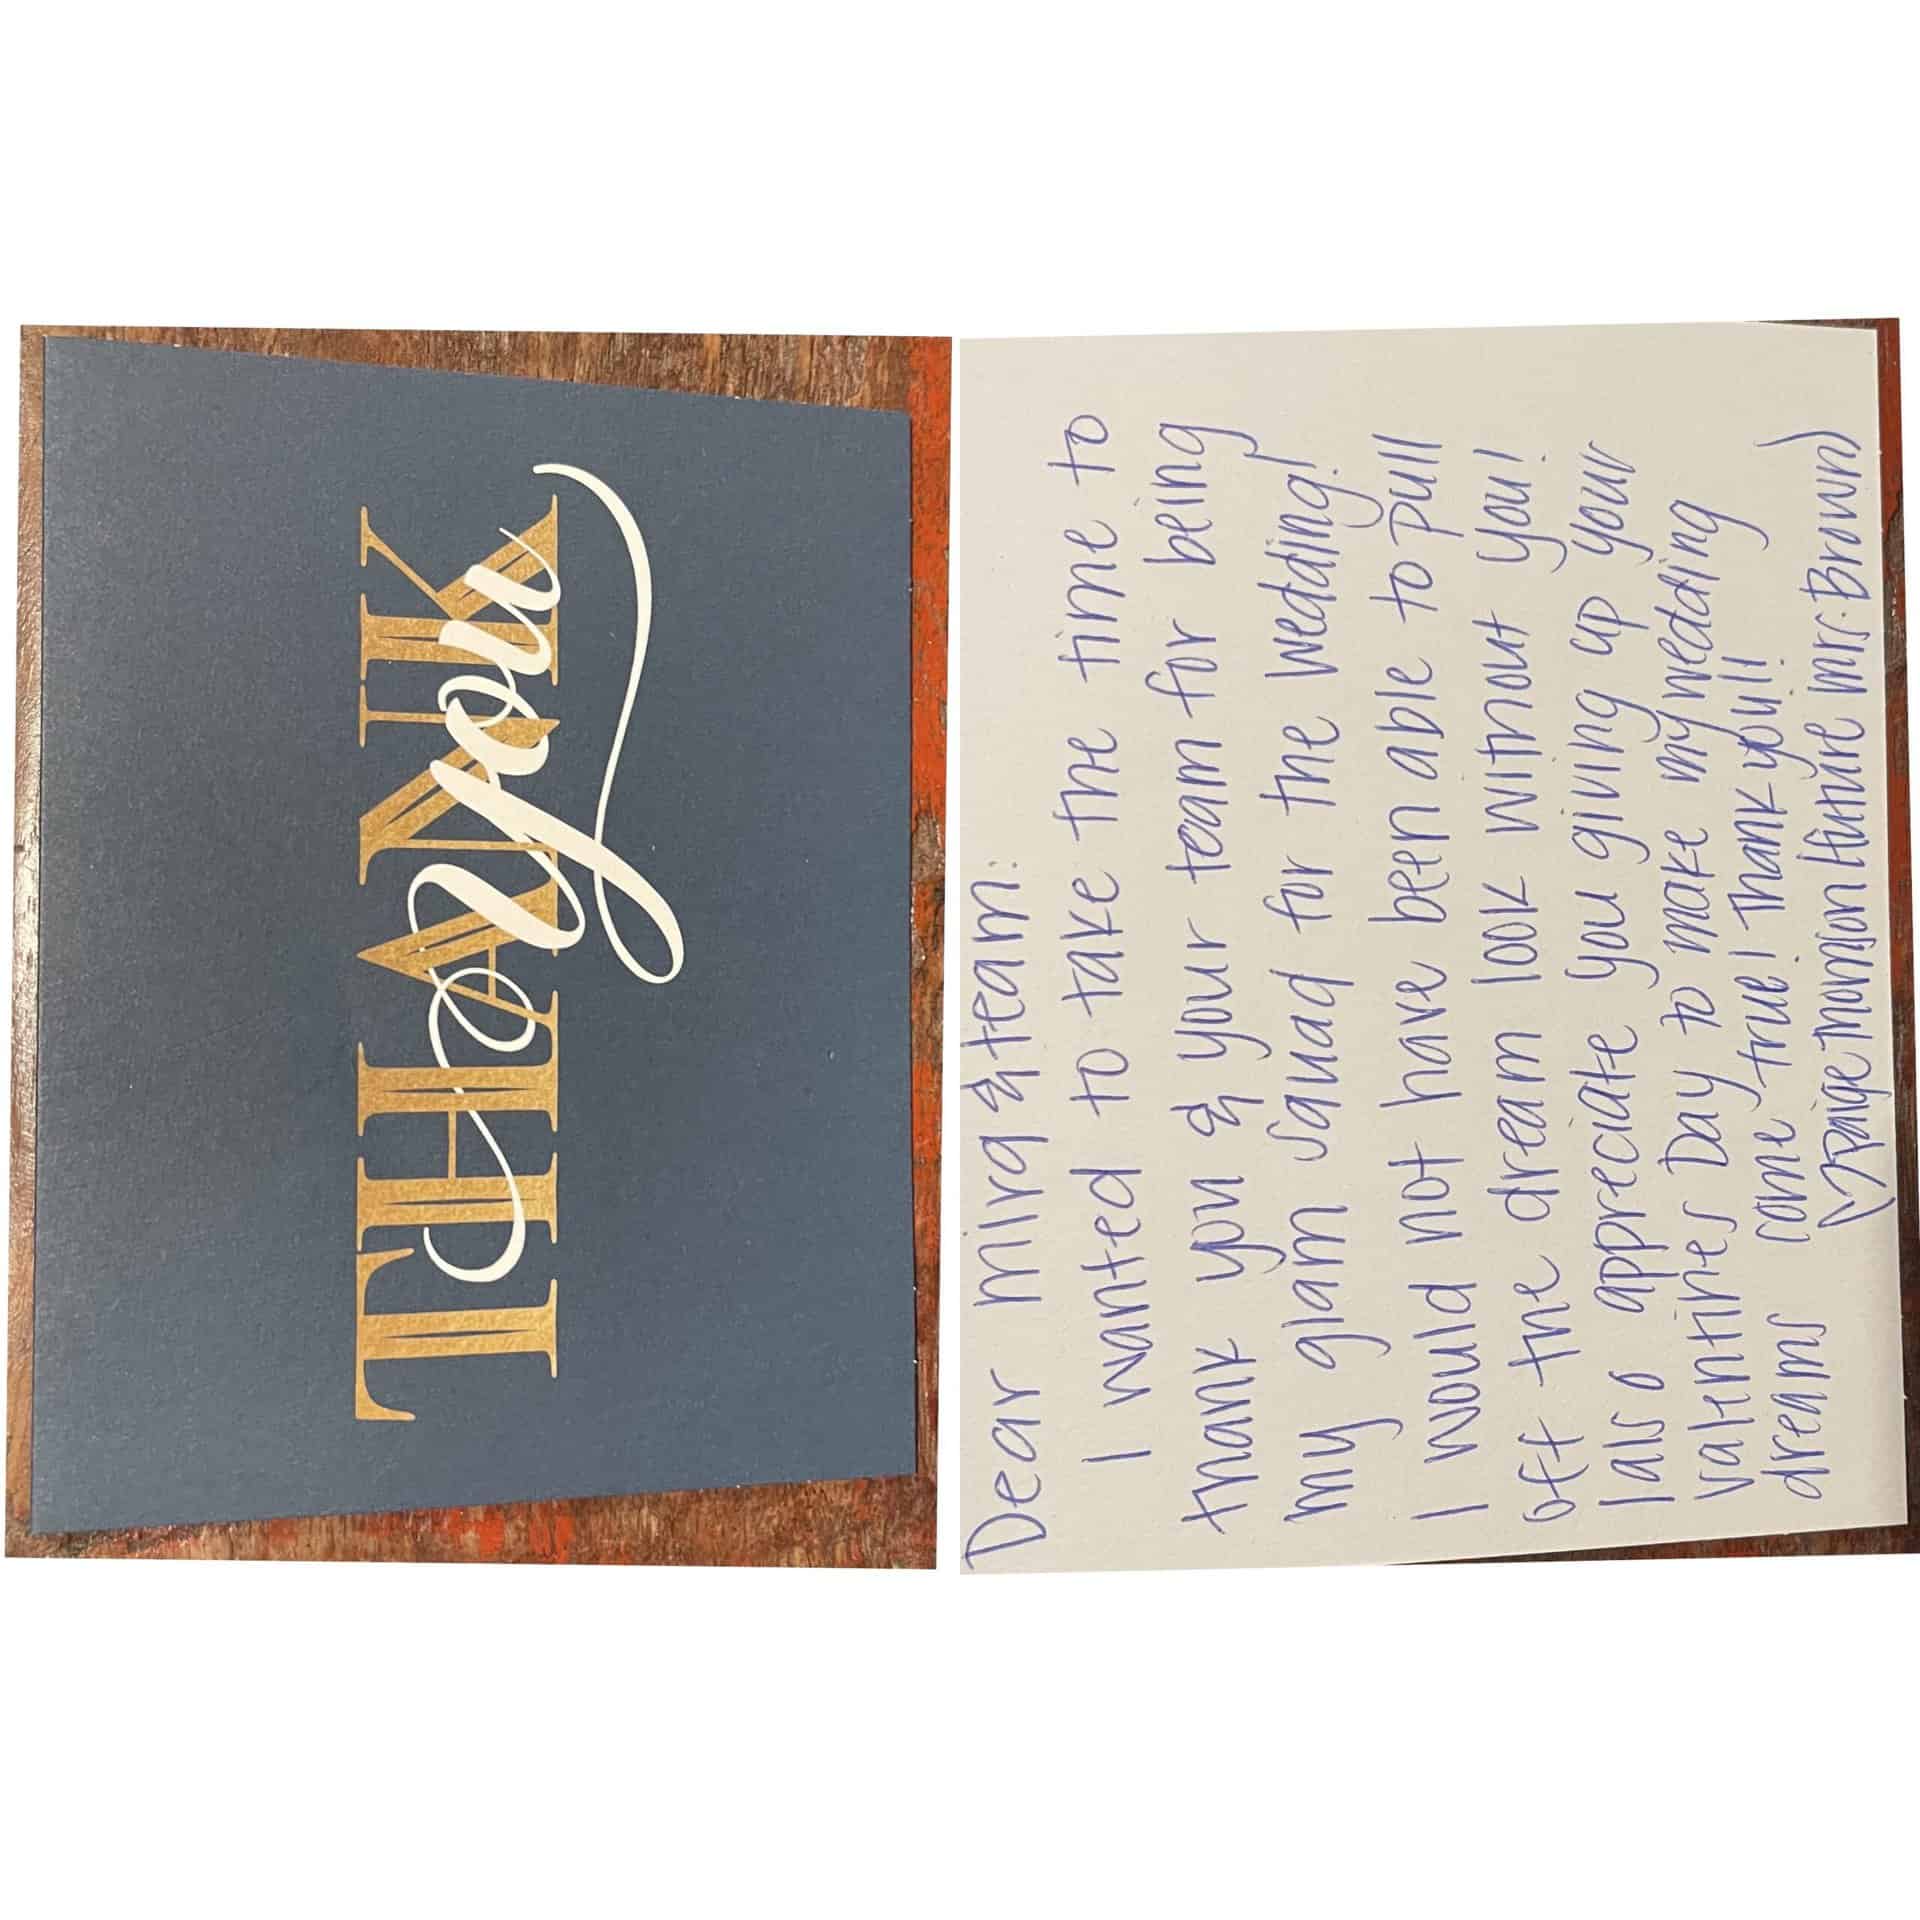 THANK
you
Dear Mira & team:
I wanted to take the time to
thank you & your team for being
my glam squad for the wedding!
I would not have been able to pull
off the dream look without you!
I also appreciate you giving up your
Valentines Day to make my wedding
dreams come true! Thank you!!
Paige (Future Mrs. Brown)